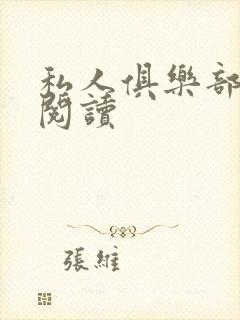 私人俱樂部
閱讀
張維